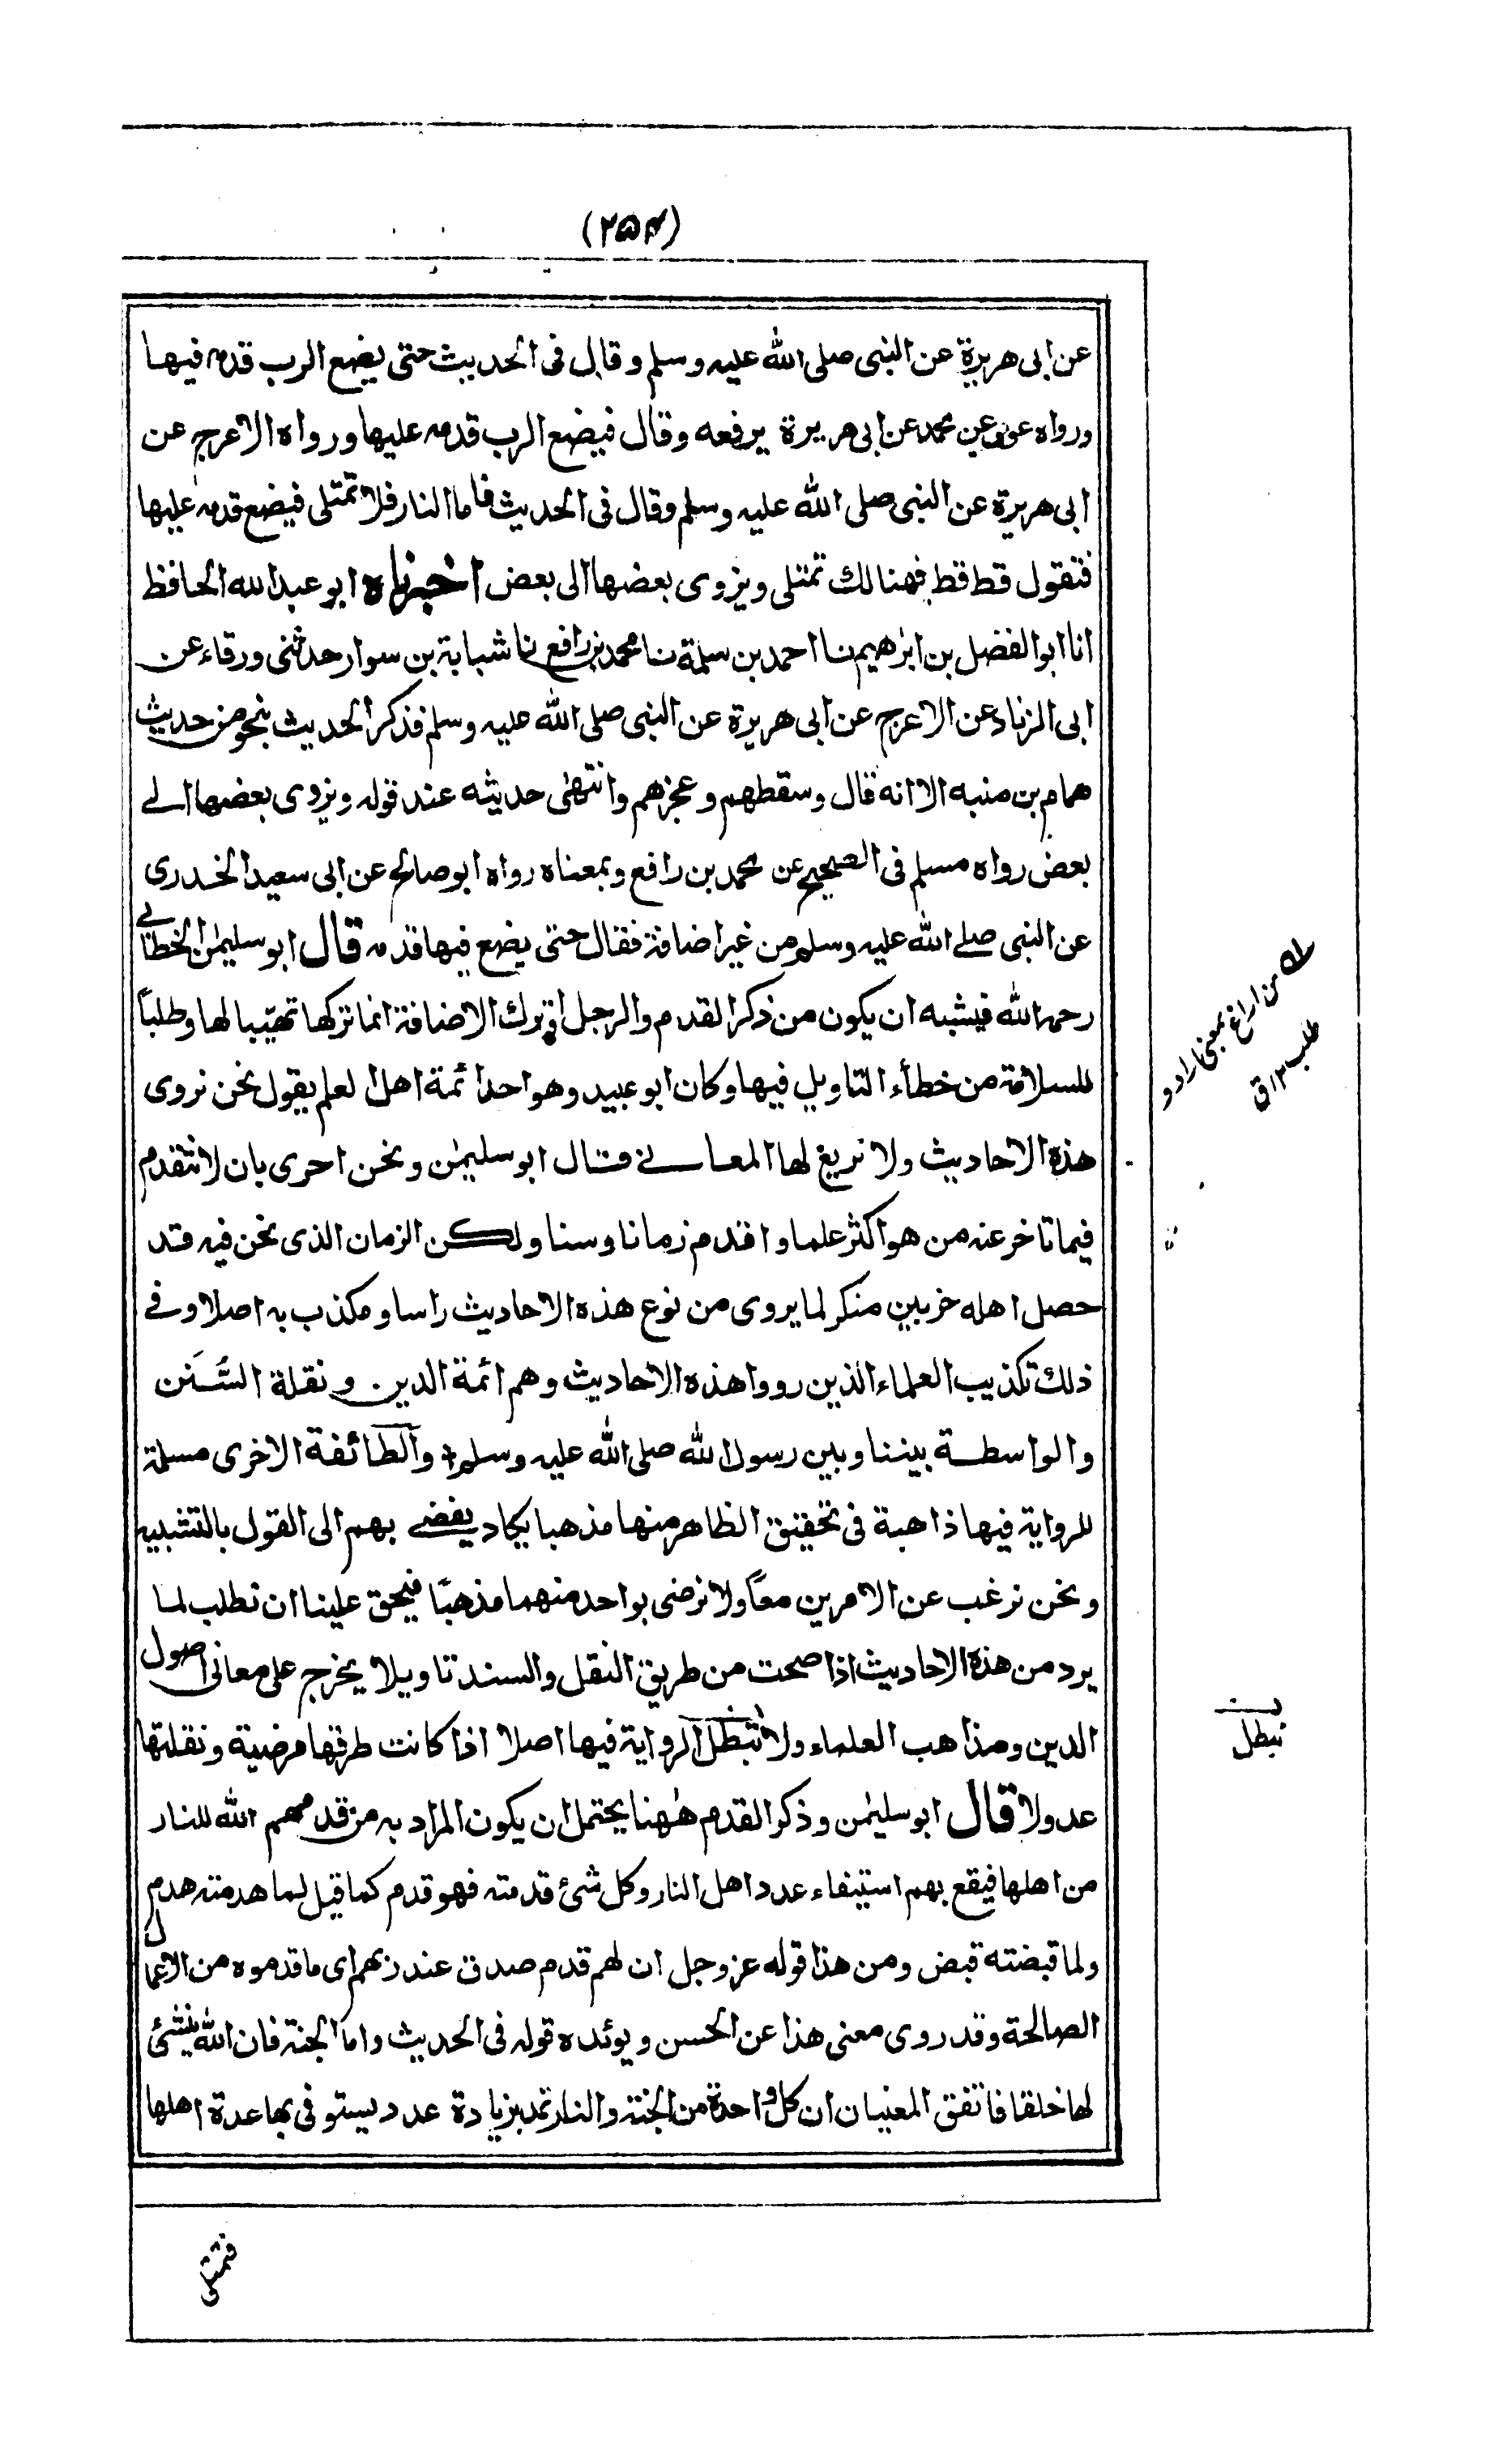 (۲۵۴)
عن ابى هريرة عن النبى صلى الله عليه وسلم وقال فى الحديث حتى يضع الرب قدمه فيها
ورواه عوف عن محمد عن ابى هريرة يرفعه وقال فيضع الرب قدمه عليها ورواه الاعرج عن
ابى هريرة عن النبى صلى الله عليه وسلم وقال فى الحديث فاما النار فلا تمتلى فيضع قدمه عليها
فتقول قط قط فهنالك تمتلى ويزوى بعضها الى بعض اخبرناه ابو عبد الله الحافظ
انا ابو الفضل بن ابرٰهيم نا احمد بن سلمة نا محمد بن رافع نا شبابة بن سوار حدثنى ورقاء عن
ابى الزناد عن الاعرج عن ابى هريرة عن النبى صلى الله عليه وسلم فذكر الحديث بنحو من حديث
همام بن منبه الا انه قال وسقطهم وعجزهم وانتهى حديثه عند قوله ويزوى بعضها الے
بعض رواه مسلم فى الصحيح عن محمد بن رافع وبمعناه رواه ابو صالح عن ابى سعيد الخدرى
عن النبى صلے الله عليه وسلم من غير اضافة فقال حتى يضع فيها قدمه قال ابو سليمٰن الخطابے
رحمه الله فيشبه ان يكون من ذكر القدم والرجل او ترك الاضافة انما تركها تهيبا لها وطلبًا
للسلامة من خطأء التاويل فيها وكان ابو عبيد وهو احد ائمة اهل العلم يقول نحن نروى
هذه الاحاديث ولا نريغ لها المعانے قال ابو سليمٰن ونحن احرى بان لا نتقدم
فيما تاخر عنه من هو اكثر علما واقدم زمانا وسنا ولكن الزمان الذى نحن فيه قد
حصل اهله حزبين منكر لما يروى من نوع هذه الاحاديث راسا ومكذب به اصلا وفے
ذلك تكذيب العلماء الذين رووا هذه الاحاديث وهم ائمة الدين ونقلة السُّنَن
والواسطة بيننا وبين رسول الله صلى الله عليه وسلم والطائفة الاخرى مسلمة
للرواية فيها ذاهبة فى تحقيق الظاهر منها مذهبا يكاد يفضے بهم الى القول بالتشبيه
ونحن نرغب عن الامرين معًا ولا نرضى بواحد منهما مذهبًا فيحق علينا ان نطلب لما
يرد من هذه الاحاديث اذا صحت من طريق النقل والسند تاويلا يخرج على معانى اصول
الدين ومذاهب العلماء ولا تبطل الرواية فيها اصلا اذا كانت طرقها مرضية ونقلتها
عدولا قال ابو سليمٰن وذكر القدم هٰهنا يحتمل ان يكون المراد به من قدمهم الله للنار
من اهلها فيقع بهم استيفاء عدد اهل النار وكل شئ قدمته فهو قدم كما قيل لما هدمته هدم
ولما قبضته قبض ومن هذا قوله عز وجل ان لهم قدم صدق عند ربهم اى ما قدموه من الاعمال
الصالحة وقد روى معنى هذا عن الحسن ويوئده قوله فى الحديث واما الجنة فان الله ينشئ
لها خلقا فاتفق المعنيان ان كل واحدة من الجنة والنار تمد بزيادة عدد يستوفى بها عدة اهلها
من اراغ بمعنى اراد و
طلب ۱۲ ق
نبطل
فتمتلى